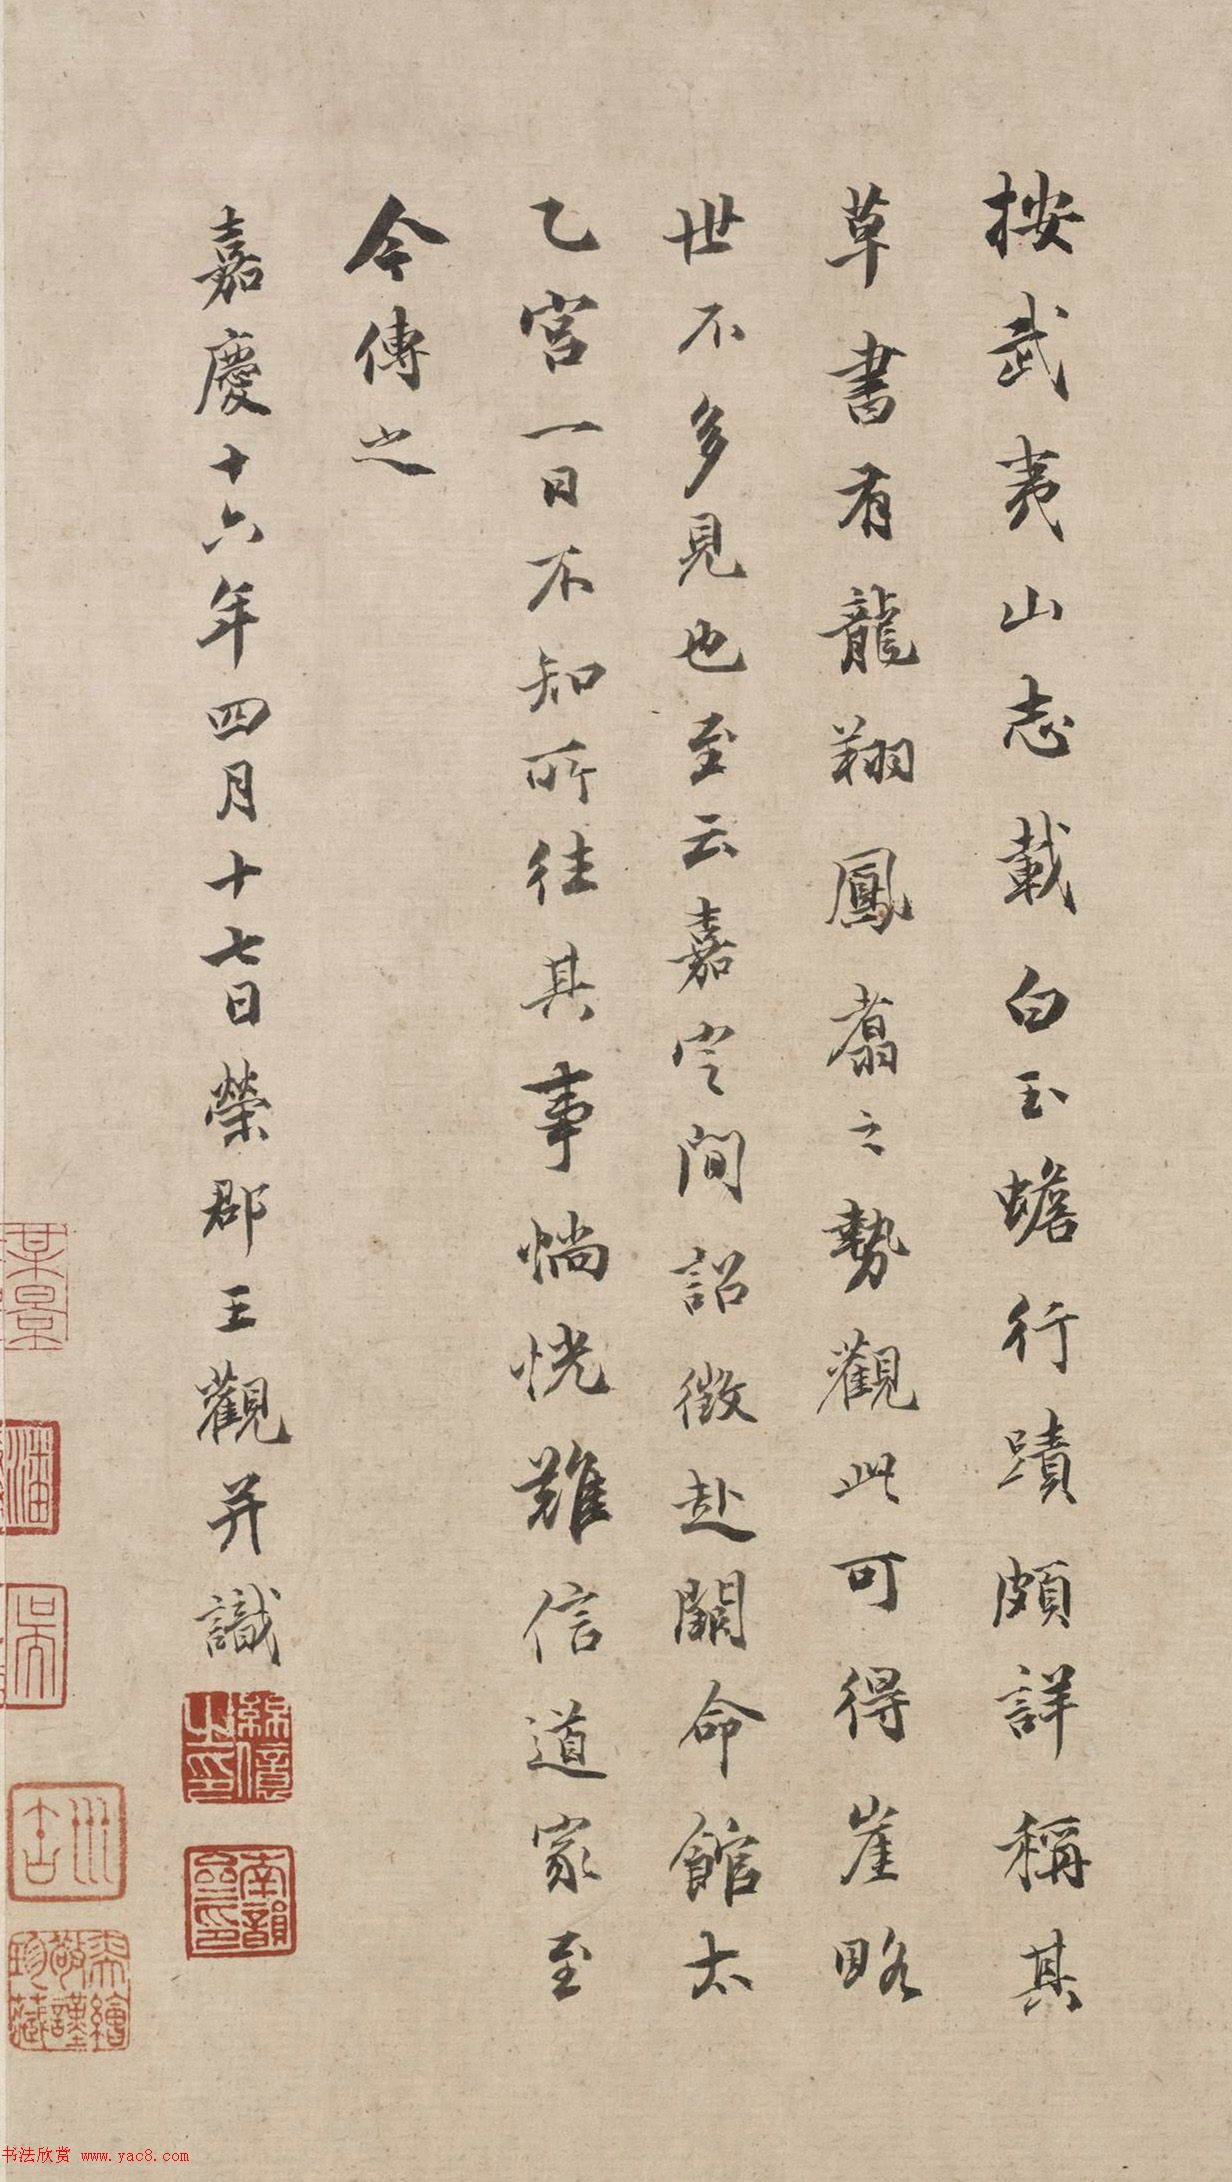 按武夷山志載白玉蟾行蹟頗詳稱其
草書有龍翔鳳翥之勢觀此可得崖略
世不多見也至云嘉定間詔徵赴闕命館太
乙宮一日不知所往其事惝恍難信道家至
今傳之
嘉慶十六年四月十七日榮郡王觀并識
綿億之印
南韻齋印
書法欣赏 www.yac8.com